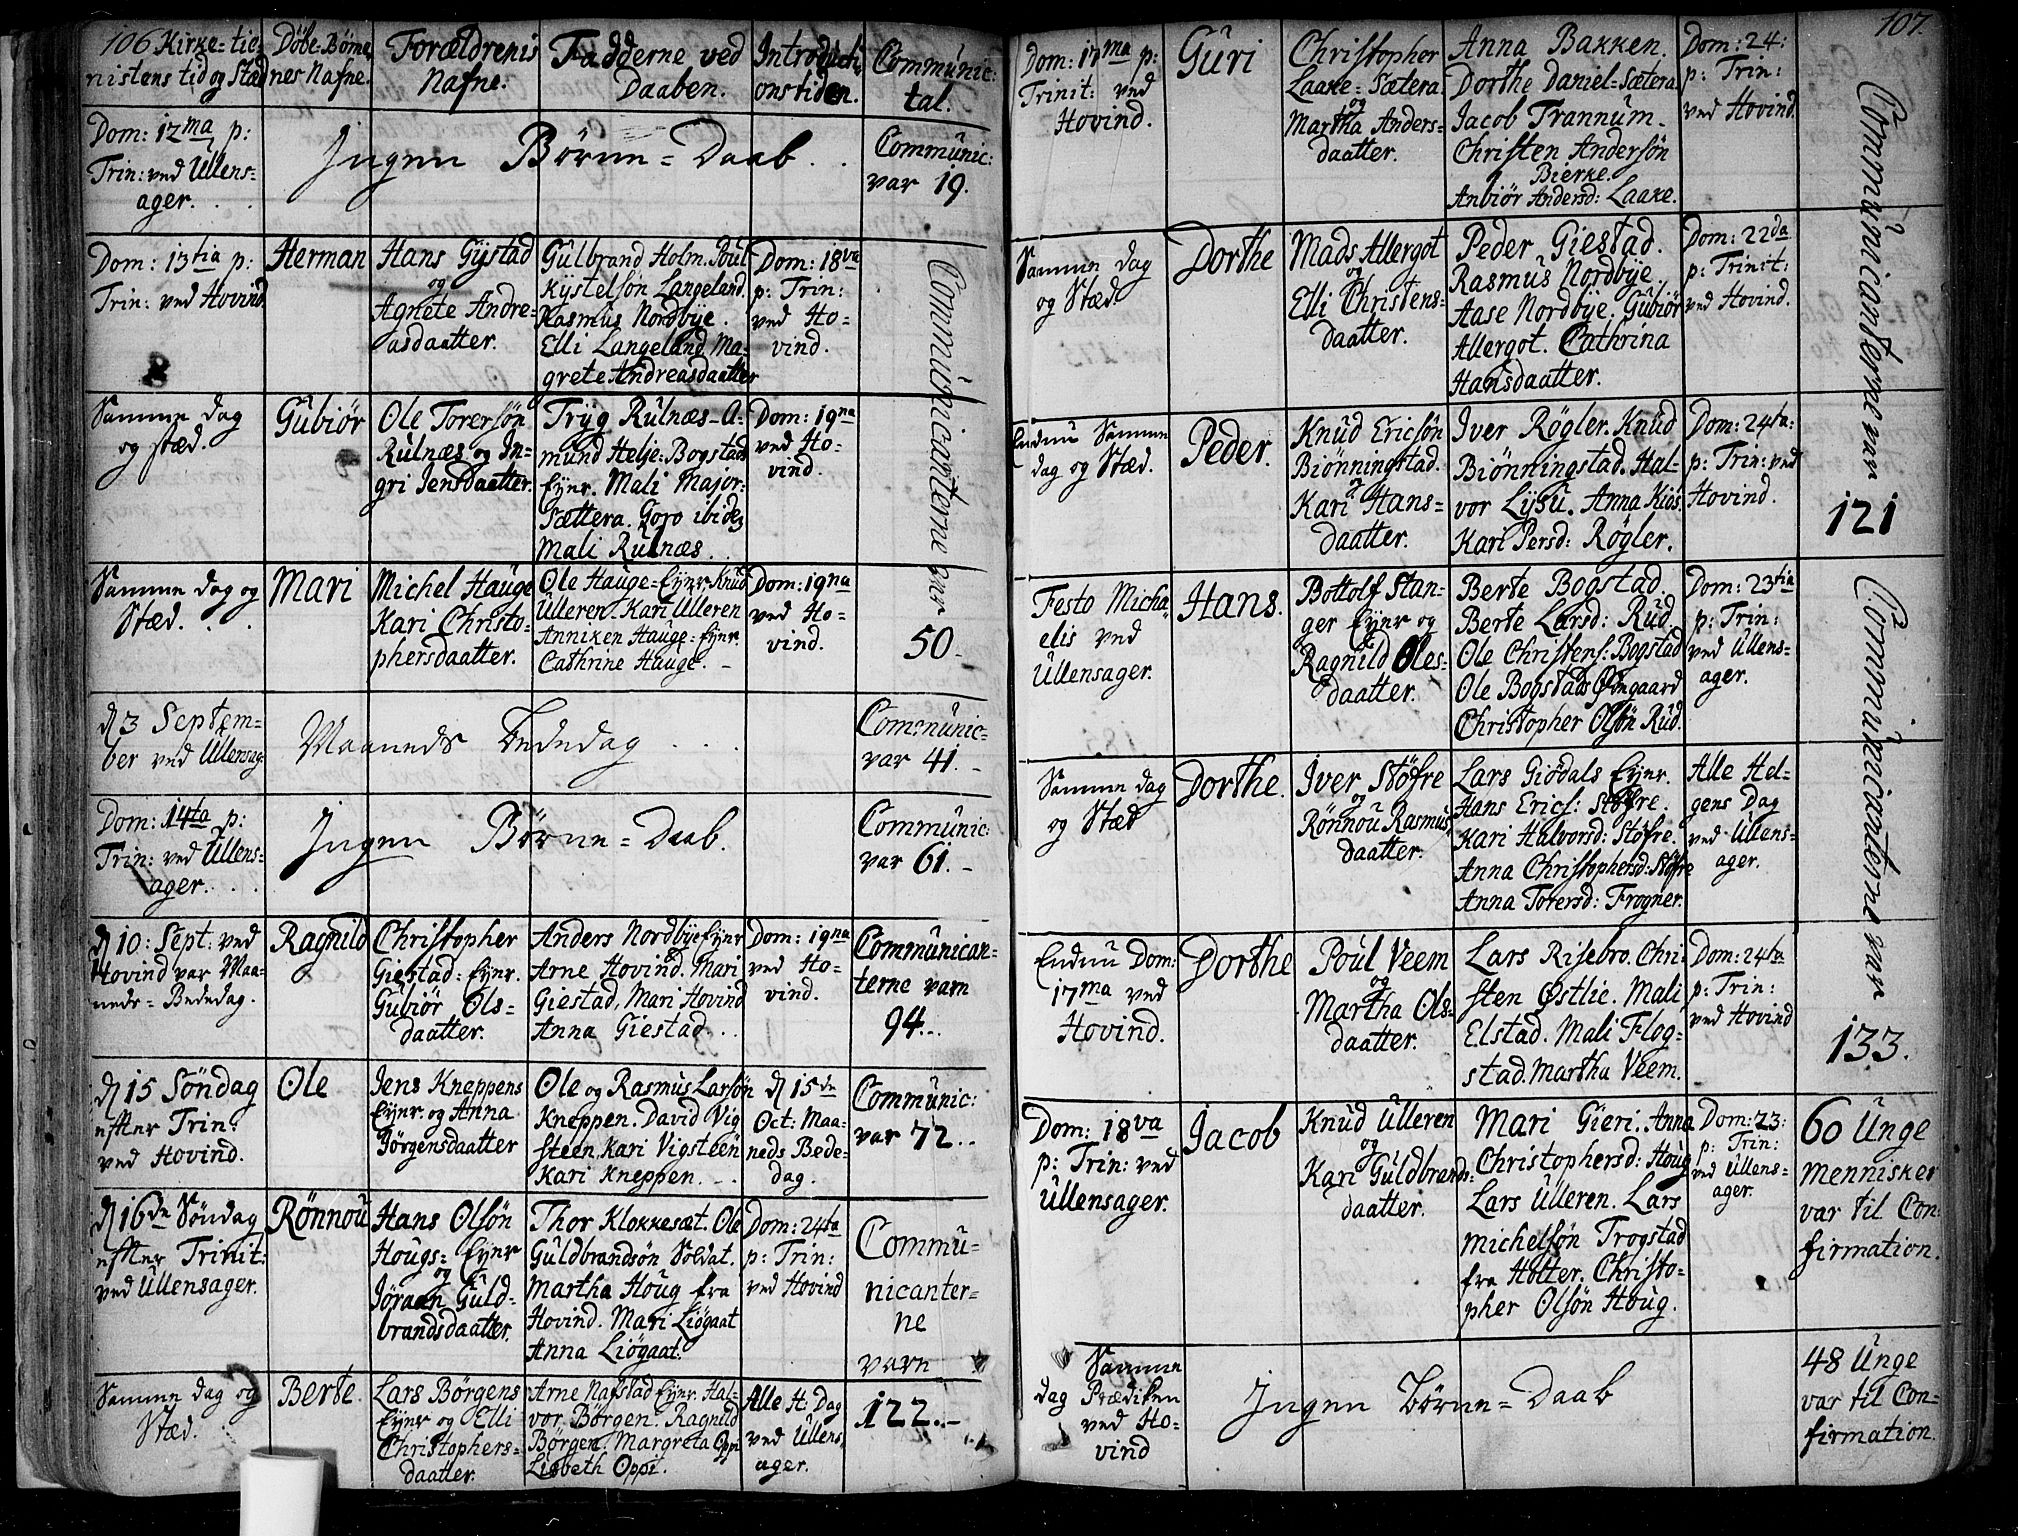 106 Kirke-tie-
nistens tid og Stæd
Døbe-Børne-
nes Nafne.
Forældrenis
Nafne.
Fadderne ved
Daaben.
Introducti-
onstiden.
Communic:
tal.
Dom: 12ma p:
Trin: ved Ullens-
ager. . .
Ingen Børne-Daab . .
Communic:
var 19.
Dom: 13tia p:
Trin: ved Hovind
Herman
Hans Gystad
og
Agnete Andre-
asdaatter.
Gulbrand Holm. Poul
Kystelsøn Langeland.
Rasmus Nordbye.
Elli Langeland. Ma-
grete Andreasdaatter
Dom: 18va
p: Trin:
ved Ho-
vind.
Communicanterne var
50.
Samme dag
og stæd.
Gubiør
Ole Torersøn
Rulnæs og In-
gri Jensdaatter.
Tryg Rulnæs-A-
mund Helje. Bogstad
Eyer. Mali Major-
Sættera. Goro ibid:
Mali Rulnæs. .
Dom: 19na
ved Ho-
vind.
Samme dag og
Stæd. . .
Mari
Michel Hauge
Kari Christo-
phersdaatter.
Ole Hauge-Eyer. Knud
Ulleren. Kari Ulleren
Anniken Hauge-Eyer
Cathrine Hauge. -
Dom: 19na
ved Ho-
vind.
d 3 Septem-
ber ved Ullensag:
Maaneds Bededag . . .
Communic-
var 41. -
Dom: 14ta p:
Trin: ved Ullens-
ager. . .
Ingen Børne-Daab.
Communic:
var 61. -
d 10: Sept: ved
Hovind var Maa-
neds-Bededag.
Ragnild
Christopher
Giestad: Eyer.
Gubiør Ols-
daatter.
Anders Nordbye Eyer
Arne Hovind. Mari
Giestad. Mari Hovind
Anna Giestad. . .
Dom: 19na
ved Ho-
vind.
Communican-
terne vare
94. -
d 15 Søndag
efter Trin:
ved Hovind.
Ole
Jens Kneppens
Eyer og Anna
Jørgensdaatter
Ole og Rasmus Larsøn
Kneppen. David Vig
steen. Kari Vigsteen
Kari Kneppen. - .
d 15de
Oct: Maa-
neds Bede-
dag.
Communic:
var 72. .
d 16de Søndag
efter Trinit:
ved Ullensager.
Rønnou
Hans Olsøn
Hougs-Eyer
og
Jøraan Guld-
brandsdaatter.
Thor Klokkesæt. Ole
Guldbrandsøn Soldat.
Martha Houg fra
Hovind. Mari Liøgaat
Anna Liøgaat.
Dom: 24ta
p: Trin:
ved Hovind
Commu-
nicanter-
ne
vare
122. -
Samme dag og
Stæd.
Berte.
Lars Børgens
Eyer og Elli
Christophers-
daatter.
Arne Nafstad Eyer. Hal-
vor Børgen. Ragnild
Børgen. Margreta Oppi
Lisbeth Oppi.
Alle H: Dag
ved Ullens-
ager.
107.
Dom: 17ma p:
Trinit: ved
Hovind.
Guri
Christopher
Laake-Sætera
og
Martha Anders-
daatter.
Anna Bakken.
Dorthe Daniel-Sætera.
Jacob Trannum.
Christen Andersøn
Bierke.
Anbiør Andersd: Laake.
Dom: 24:
p: Trin:
ved Hovind.
Communicanterne var
121
Samme dag
og Stæd.
Dorthe
Mads Allergot
og
Elli Christens-
daatter.
Peder Giestad.
Rasmus Nordbye.
Aase Nordbye. Gubiør
Allergot. Cathrina
Hansdaatter.
Dom: 22da
p: Trinit:
ved Hovind.
Endnu Samme
dag og Stæd.
Peder.
Knud Ericsøn
Biønningstad.
og
Kari Hans-
daatter.
Iver Røgler. Knud
Biønningstad. Hal-
vor Lysu. Anna Kios.
Kari Persd: Røgler.
Dom: 24ta:
p: Trin: ved
Hovind.
Festo Micha-
elis ved
Ullensager.
Hans.
Bottolf Stan-
ger Eyer og
Ragnild Oles-
daatter.
Berte Bogstad.
Berte Larsd: Rud.
Ole Christens: Bogstad
Ole Bogstads Øvgaard
Christopher Olsøn Rud.
Dom: 23tia
p: Trin:
ved Ullens-
ager.
Communicanterne var
133.
Samme dag
og Stæd
Dorthe.
Iver Støfre
og
Rønnou Rasmus-
daatter.
Lars Giødals Eyer.
Hans Erics: Støfre.
Kari Halvorsd: Støfre.
Anna Christophersd: Støfre
Anna Torersd: Frogner.
Alle Hel-
gens Dag
ved Ullens-
ager.
Endnu Dom:
17ma ved
Hovind.
Dorthe
Poul Veem
og
Martha Ols-
daatter.
Lars Risebro. Chri-
sten Østlie. Mali
Elstad. Mali Flog-
stad. Martha Veem.
Dom: 24ta
p: Trin:
ved Hovind
Dom: 18va
p: Trin: ved
Ullensager.
Jacob
Knud Ulleren
og
Kari Guldbrands-
daatter.
Mari Gieri. Anna
Christophersd: Houg
Lars Ulleren. Lars
Michelsøn Trogstad
fra Holter. Christo-
pher Olsøn Houg.
Dom: 23:
p: Trin:
ved Ullens-
ager.
60 Unge
Mennisker
var til Con-
firmation.
Samme
dag Prædiken
ved Ho-
vind
Ingen Børne-Daab
48 Unge
var til Con-
firmation.